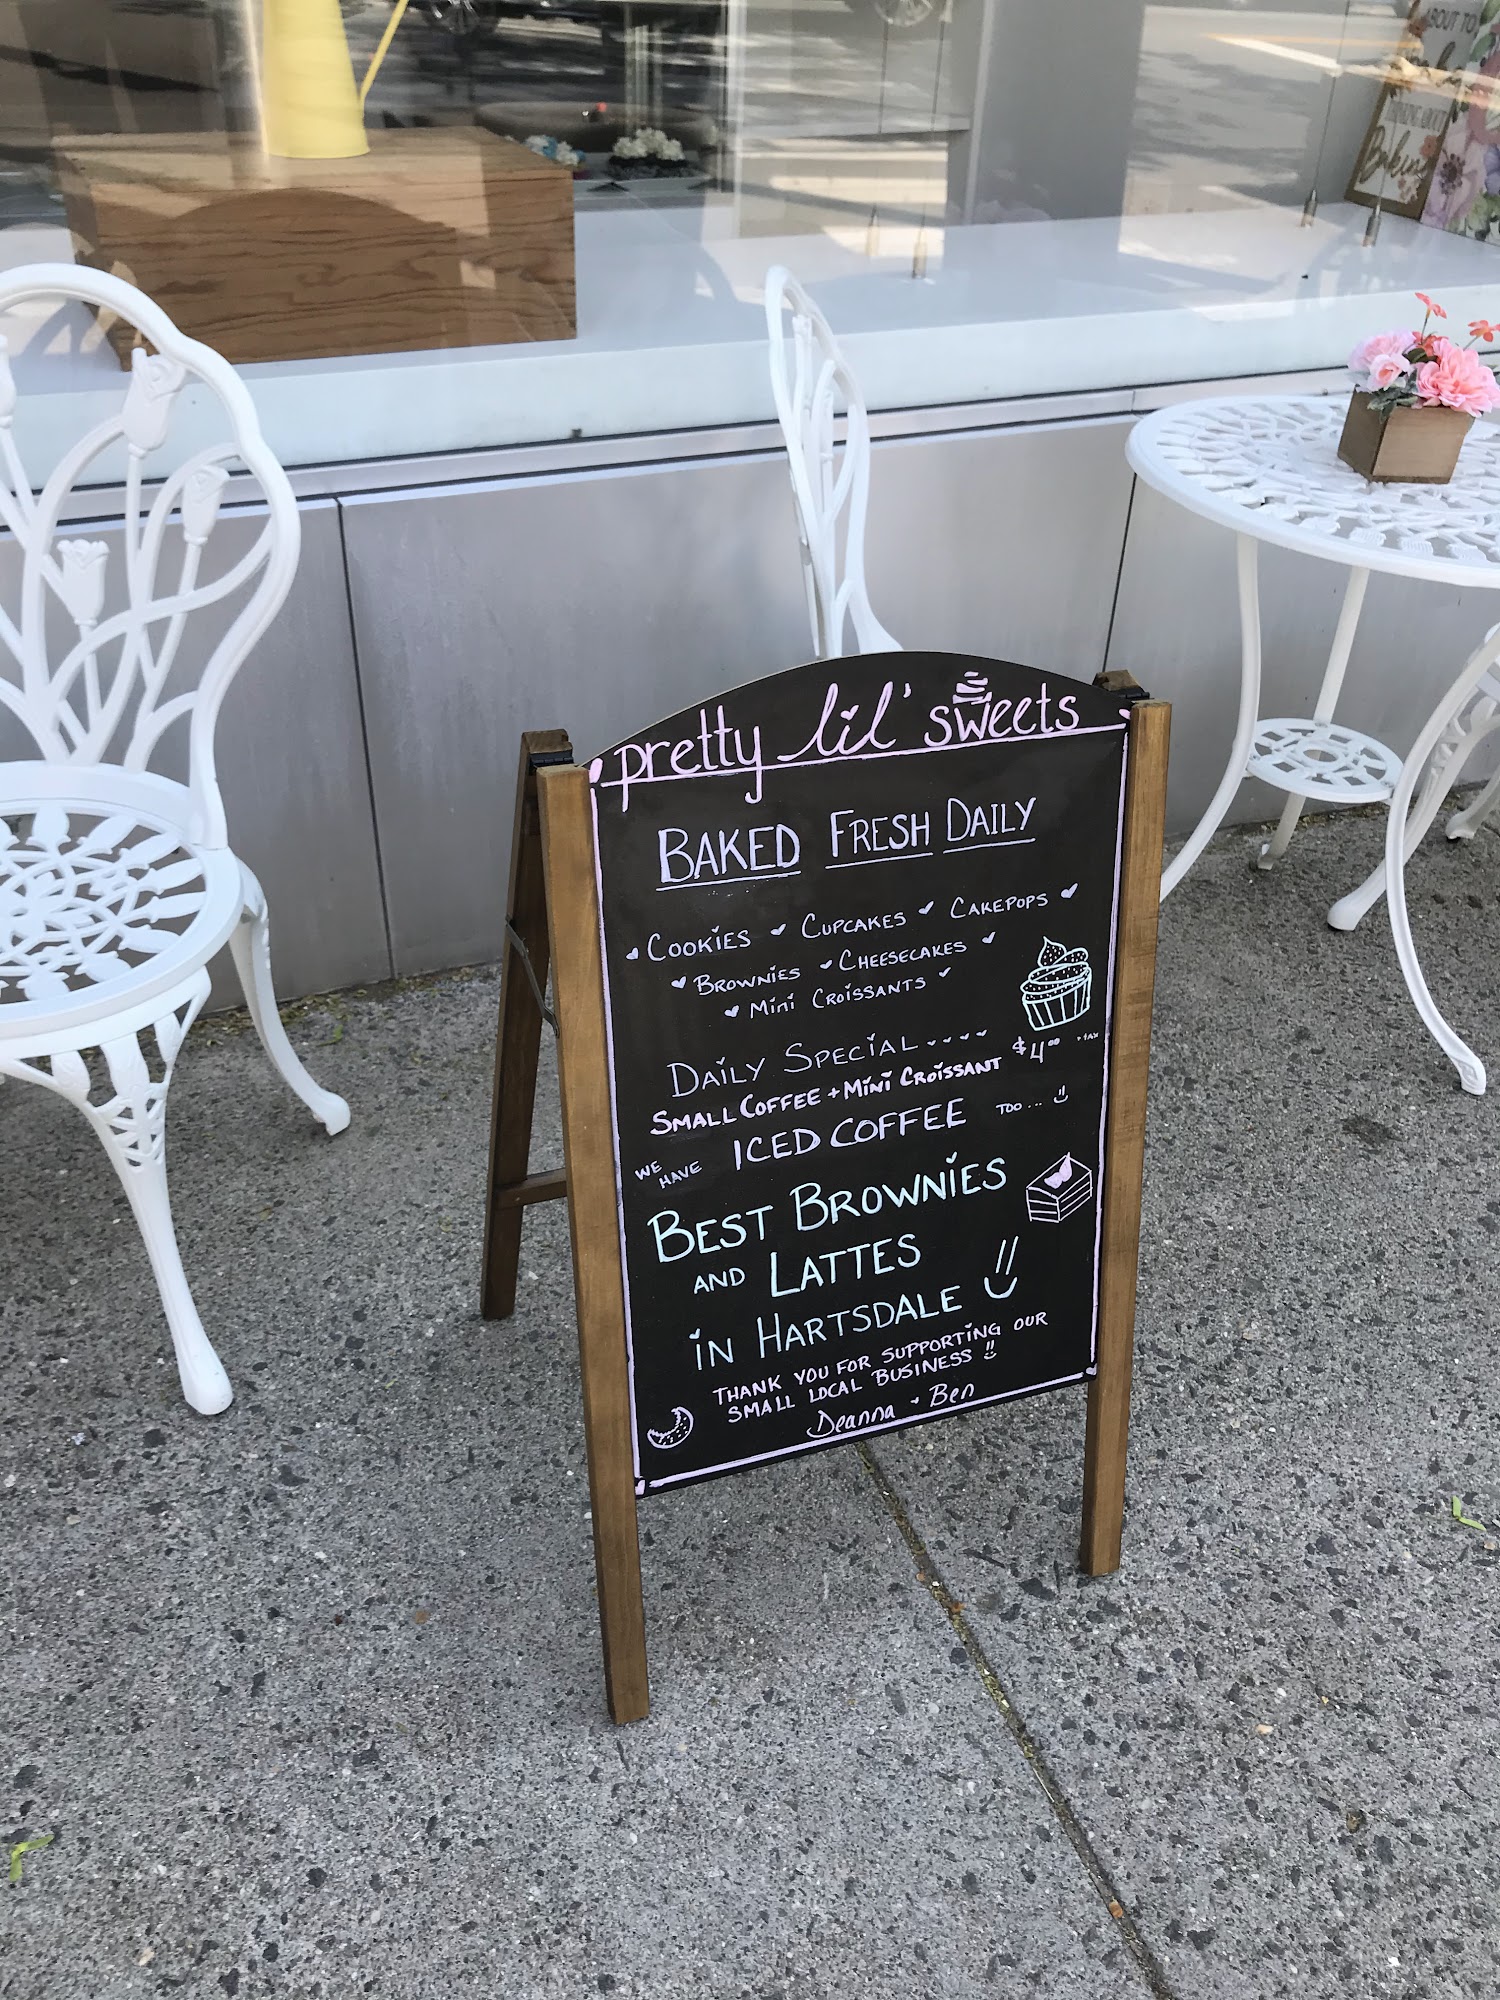 pretty lil' sweets
BAKED FRESH DAILY
COOKIES CUPCAKES CAKEPOPS
BROWNIES CHEESECAKES
MiNi CROiSSANTS
DAiLY SPECiAL.... $4.00 + TAX
SMALL COFFEE + MiNi CROiSSANT
WE HAVE ICED COFFEE TOO...
BEST BROWNiES
AND LATTES
iN HARTSDALE
THANK YOU FOR SUPPORTiNG OUR
SMALL LOCAL BUSiNESS
Deanna + Ben
ABOUT TO
Baking